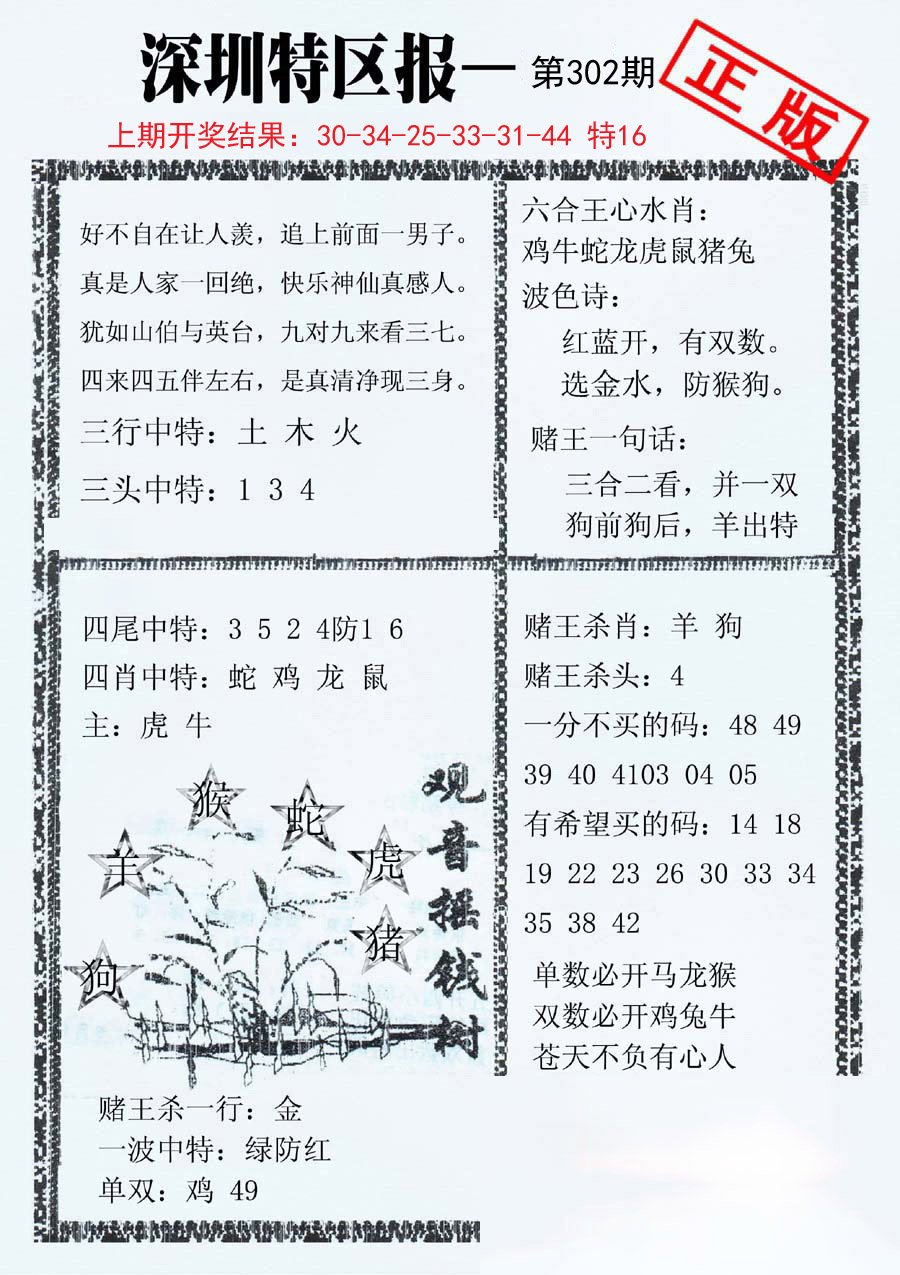 深圳特区报一 第302期
正版
上期开奖结果：30-34-25-33-31-44 特16
好不自在让人羡，追上前面一男子。
真是人家一回绝，快乐神仙真感人。
犹如山伯与英台，九对九来看三七。
四来四五伴左右，是真清净现三身。
三行中特：土 木 火
三头中特：1 3 4
六合王心水肖：
鸡牛蛇龙虎鼠猪兔
波色诗：
红蓝开，有双数。
选金水，防猴狗。
赌王一句话：
三合二看，并一双
狗前狗后，羊出特
四尾中特：3 5 2 4防1 6
四肖中特：蛇 鸡 龙 鼠
主：虎 牛
猴
蛇
羊
虎
猪
狗
观音摇钱树
赌王杀一行：金
一波中特：绿防红
单双：鸡 49
赌王杀肖：羊 狗
赌王杀头：4
一分不买的码：48 49
39 40 4103 04 05
有希望买的码：14 18
19 22 23 26 30 33 34
35 38 42
单数必开马龙猴
双数必开鸡兔牛
苍天不负有心人